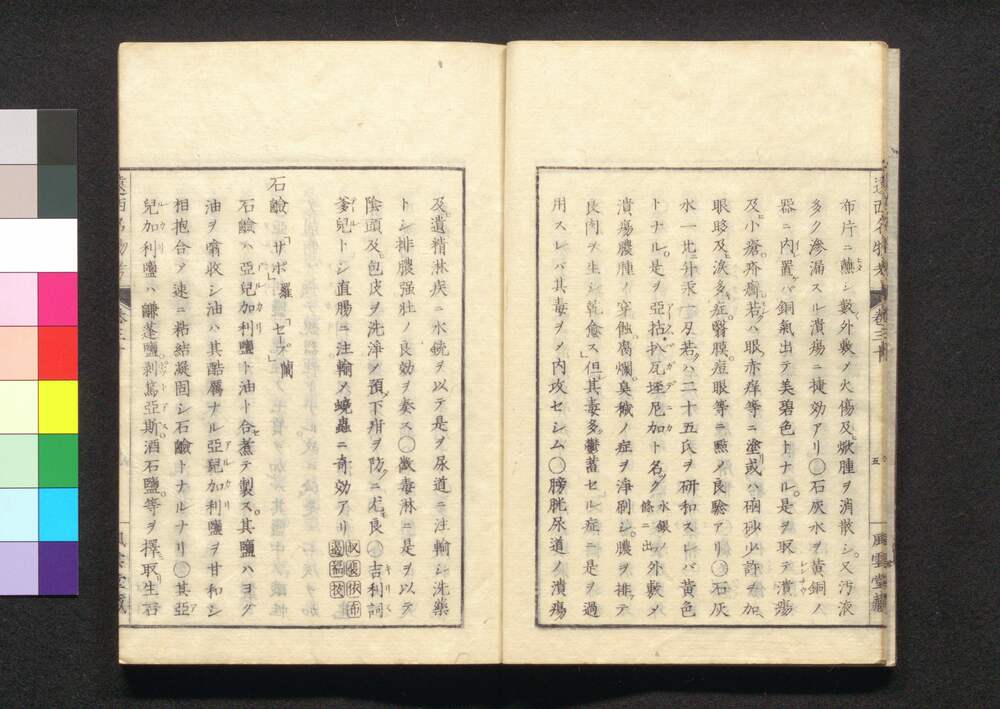 布片ニ蘸シ數〻外敷ノ火傷及焮腫ヲ消散シ又汚液
多ク滲漏スル潰瘍ニ捷効アリ〇石灰水ヲ黄銅ノ
器ニ内置ケバ銅氣出テ美碧色トナル是ヲ取テ潰瘍
及小瘡疥癬若ハ眼赤痒等ニ塗或ハ硇砂少許ヲ加
眼眵及淚多症瞖膜痘眼等ニ㸃メ良驗アリ〇石灰
水一比升汞一刄若ハ二十五氏ヲ研和スレバ黄色
トナル是ヲ亞括扒瓦垤尼加ト名ク水銀ノ條ニ出外敷メ
潰瘍膿腫イ穿蝕腐爛臭穢ノ症ヲ淨刷シ膿ヲ排テ
良肉ヲ生シ乾愈ス但其毒多鬱蓄セル症ニ是ヲ過
用スレバ其毒ヲメ内攻セシム〇膀胱尿道ノ潰瘍
五
風雲堂藏
及遺精淋疾ニ水銃ヲ以テ是ヲ尿道ニ注輸シ洗藥
トシ排膿强壯ノ良効ヲ奏ス〇黴毒淋ニ是ヲ以テ
陰頭及包皮ヲ洗淨メ預下疳ヲ防ニ尤良〇吉利詞
爹兒トシ直腸ニ注輸メ蟯蟲ニ奇効アリ
石鹼「サポ」羅「セープ」蘭
石鹼ハ亞兒加利鹽ト油ト合煮テ製ス其鹽ハヨク
油ヲ噏收シ油ハ其酷厲ナル亞兒加利鹽ヲ甘和シ
相抱合メ速ニ粘結凝固シ石鹼トナルナリ〇其亞
兒加利鹽ハ鹻蓬鹽剥篤亞斯酒石鹽等ヲ擇取生石